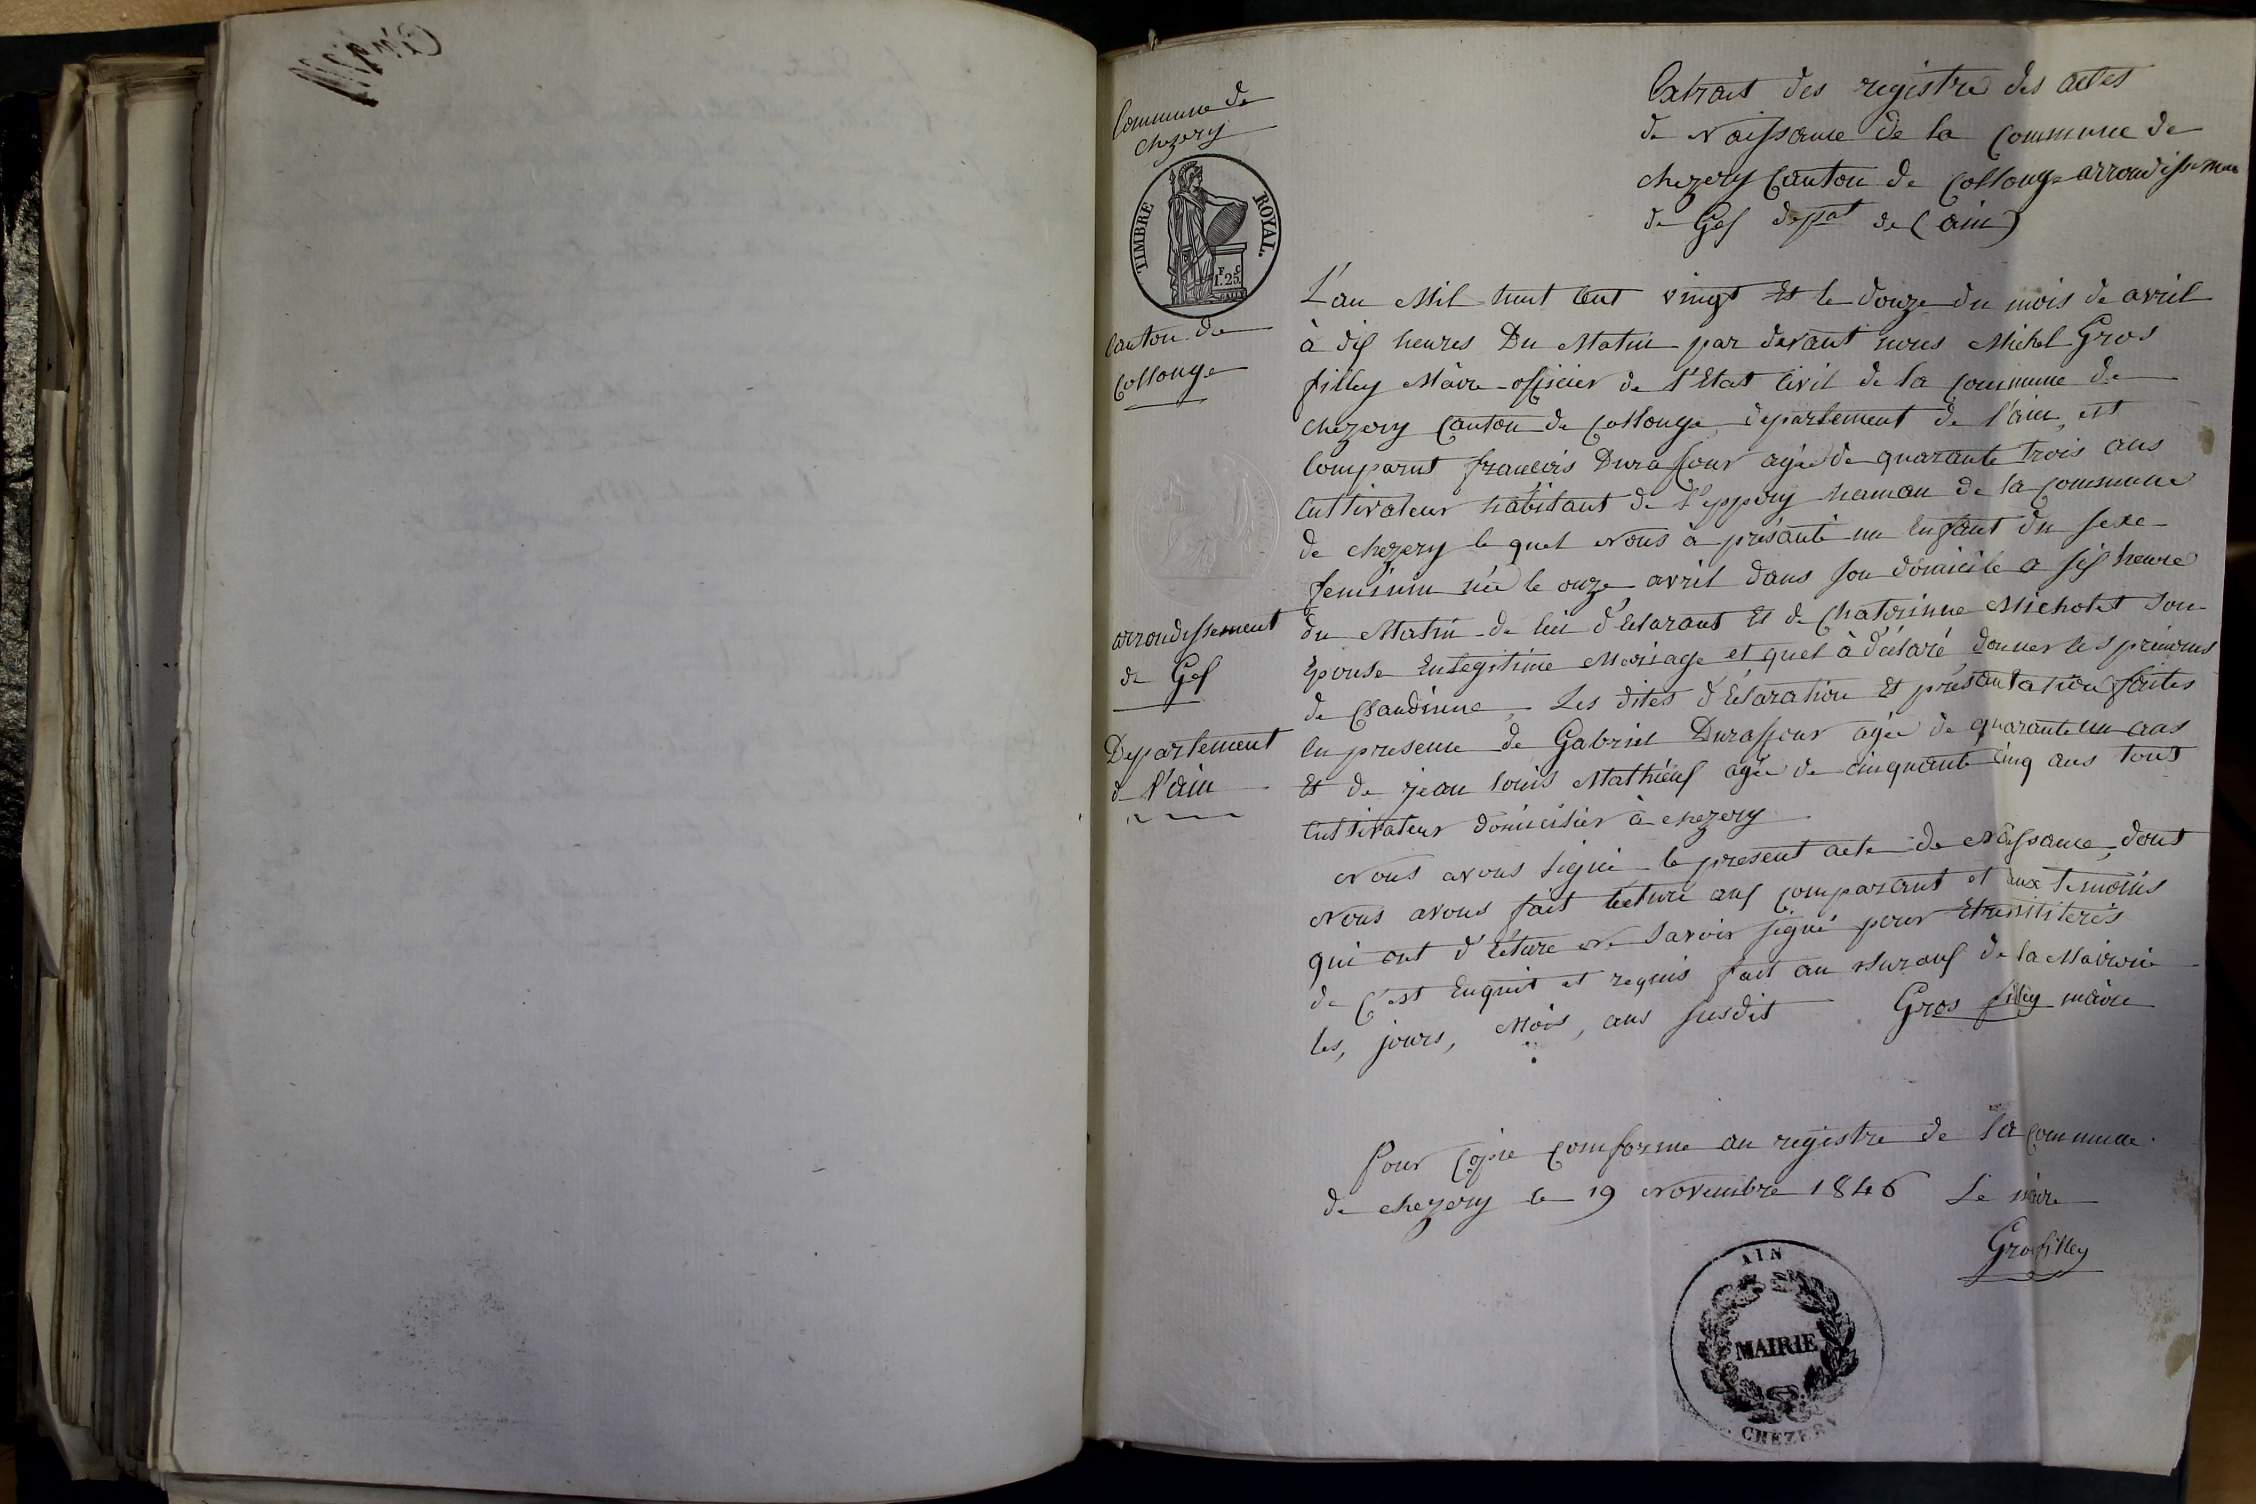 Commune de
chezery
TIMBRE ROYAL.
F. C.
1.25
Canton de
Collonge
arrondissement
de Gex
Departement
de l'ain
Extrait des registre des actes
de Naissance de la Commune de
chezery Canton de Collonge arrondissemen
de Gex depat de (ain)
L'an Mil huit Cent vingt Et le douze du mois de avril
à dix heures Du Matin par devant nous Michel Gros
filley Maire officier de l'Etat Civil de la Commune de
chezery Canton de Collonge departement de l'ain, est
Comparut françois Duraffour agée de quarante trois ans
Cultivateur habitant de l'eppery hamau de la Commune
de chezery le quel Nous à présanté un Enfant du sexe
feminin née le onze avril dans son domicile a six heure
du Matin de lui d'éclarant Et de Chatérinne Micholet Son
Epouse En legitime Mariage et quel à d'éclaré donner les prénoms
de Claudinne, Les dites d'éclaration Et présantation faites
En presence de Gabriel Duraffour agée de quarante un ans
Et de jean louis Mathieux agée de cinquante cinq ans tout
Cultivateur domicilier à chezery
Nous avons Signé le present acte de Naissance, dont
Nous avons fait lecture aux Comparant et aux temoins
qui ont d'éclare Ne Savoir signé pour
de C'est Enquit et requis fait au Buraux de la Mairie
les, jours, Mois, ans susdit Gros filley maire
Pour Copie Comforme au registre de la Commune
de chezery le 19 Novembre 1846 Le maire
Grosfilley
AIN
MAIRIE
CHEZERY